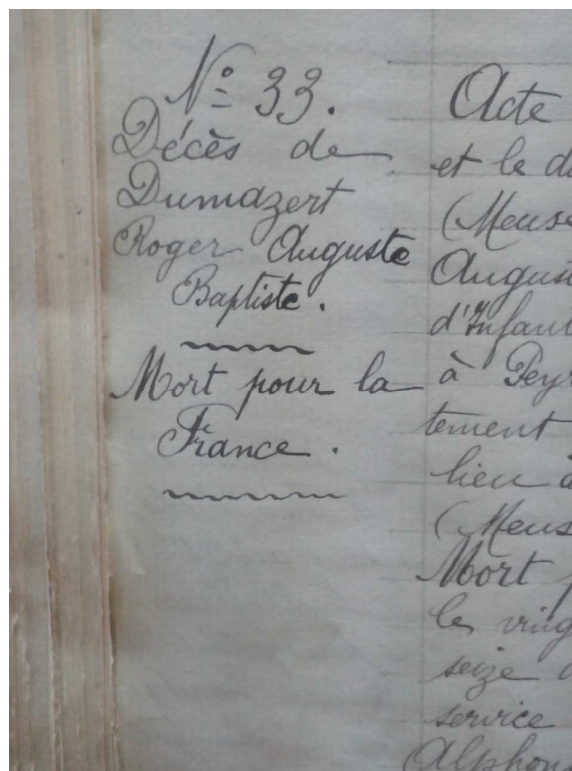 N° 33.
Décès de
Dumazert
Roger Auguste
Baptiste.
Mort pour la
France.
Acte
et le
(Meuse
August
d'Infant
à Peyr
tement
lieu à
(Meus
Mort
le ving
seize
service
Alphons